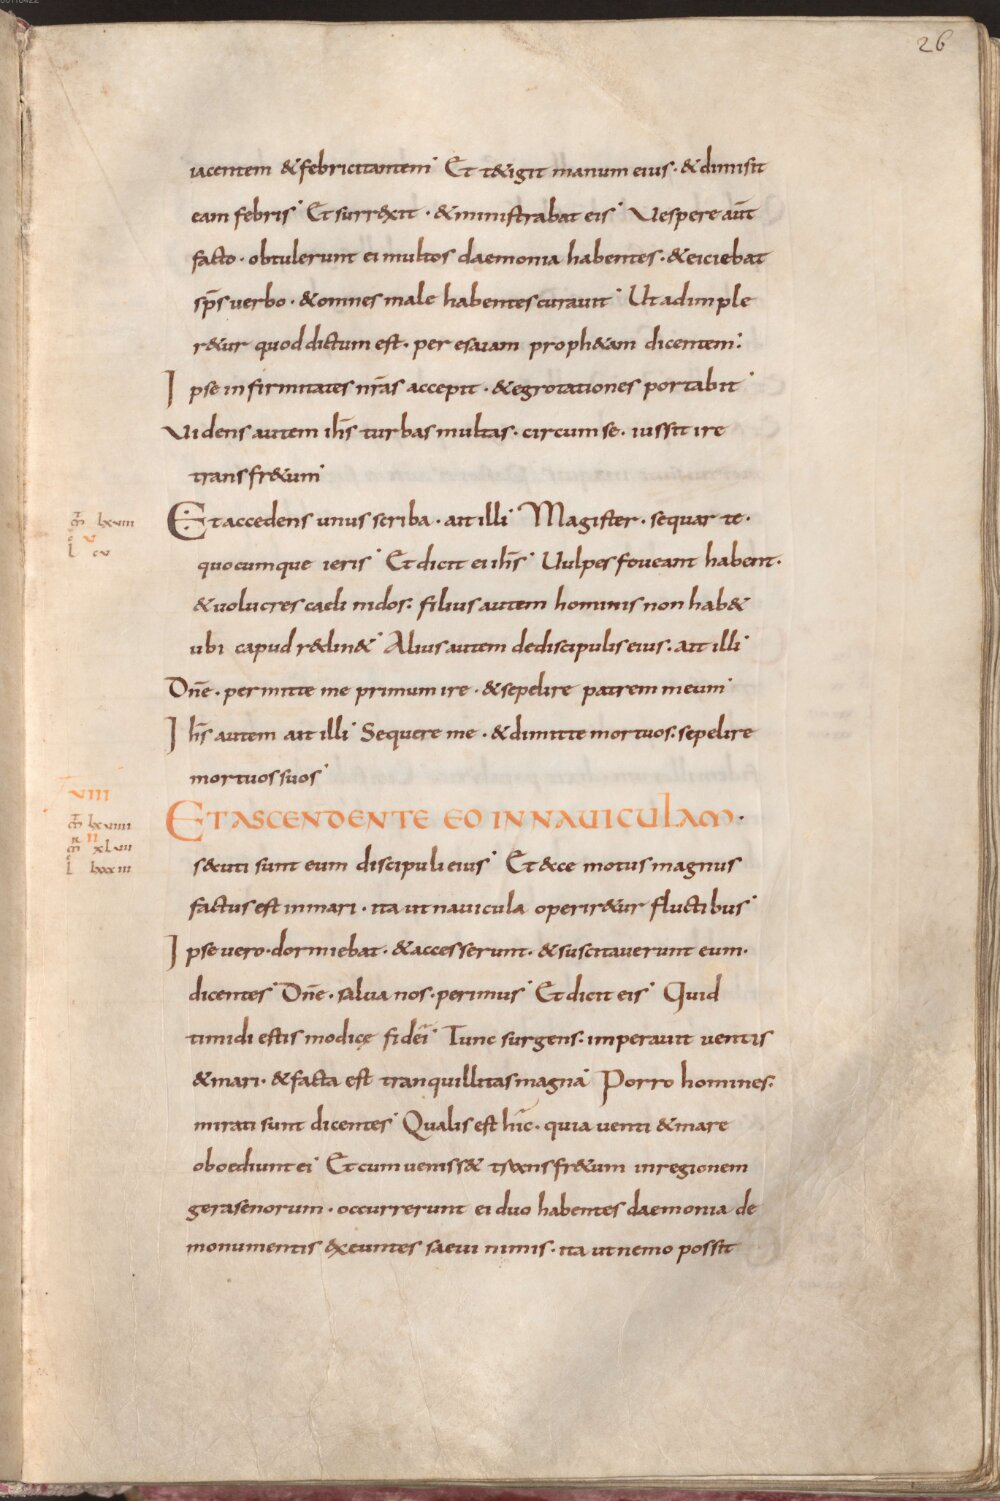 26
iacentem &febricitantem Et t&igit manum eius · &dimisit
eam febris Et surr&xit · &ministrabat eis Vespere aut̄
facto · obtulerunt ei multos daemonia habentes · &eiciebat
sp̄s verbo · &omnes male habentes curavit Ut adimple
r&ur quod dictum est · per esaiam proph&am dicentem
Ipse infirmitates nr̄as accepit · &egrotationes portabit
Videns autem ih̄s turbas multas · circum se · iussit ire
trans fr&um
Et accedens unus scriba · ait illi Magister · sequar te ·
quocumque ieris Et dicit ei ih̄s Uulpes foveant habent ·
&volucres caeli nidos · filius autem hominis non hab&
ubi capud r&lin& Alius autem de discipulis eius · ait illi
Dn̄e · permitte me primum ire · &sepelire patrem meum
Ih̄s autem ait illi Sequere me · &dimitte mortuos · sepelire
mortuos suos
VIII
ET ASCENDENTE EO IN NAUICULAM ·
s&cuti sunt eum discipuli eius Et &ce motus magnus
factus est in mari · ita ut navicula operir&ur fluctibus
Ipse vero · dormiebat · &accesserunt · &suscitaverunt eum ·
dicentes Dn̄e · salva nos · perimus Et dicit eis Quid
timidi estis modicę fidei Tunc surgens · imperavit ventis
&mari · &facta est tranquillitas magna Porro homines ·
mirati sunt dicentes Qualis est hic · quia venti &mare
oboediunt ei Et cum veniss& trans fr&um in regionem
gerasenorum · occurrerunt ei duo habentes daemonia de
monumentis &xeuntes saevi nimis · ita ut nemo possit